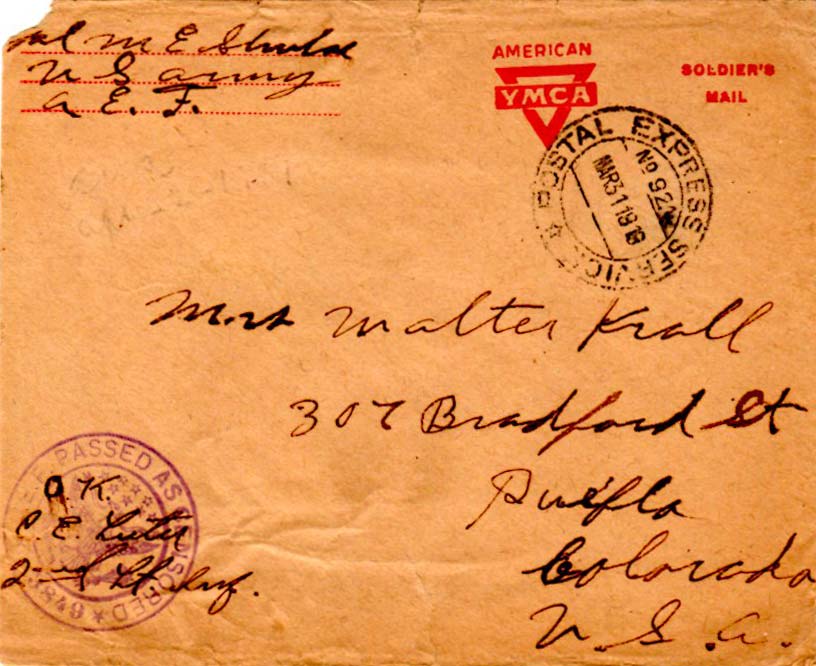 M E
U S Army
A. E. F.
AMERICAN
YMCA
SOLDIER'S
MAIL
POSTAL EXPRESS SERVICE
No 921
MAR 31 1918
Mrs Walter Krall
307 Bradford St
Pueblo
Colorado
U.S.A.
PASSED AS CENSORED
O.K.
C. E.
2nd Lt Inf.